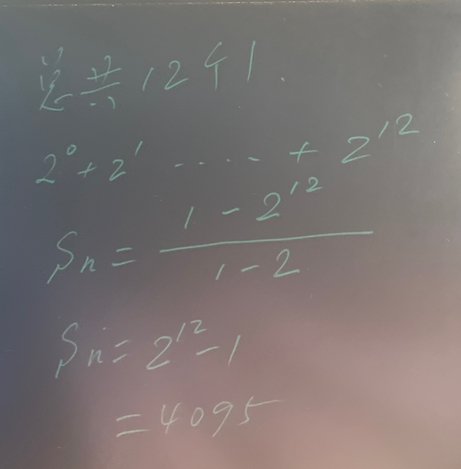 总共12个1.
2⁰+2¹ ····· + 2¹²
Sn = (1-2¹²)/(1-2)
Sn = 2¹²-1
=4095